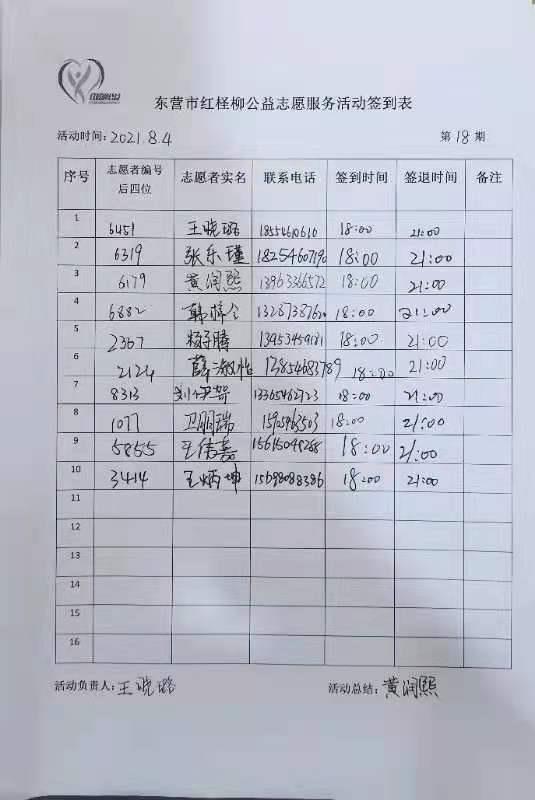 东营市红柽柳公益志愿服务活动签到表
活动时间：2021.8.4 第18期
序号 志愿者编号后四位 志愿者实名 联系电话 签到时间 签退时间 备注
1 6451 王晓璐 18554610610 18:00 21:00
2 6319 张乐瑾 18254607190 18:00 21:00
3 6179 黄润熙 13963366572 18:00 21:00
4 6882 18:00 21:00
5 2367 杨子腾 13953459181 18:00 21:00
6 2124 薛淑怡 13854683789 18:00 21:00
7 8313 刘伊贺 18:00 21:00
8 1077 卫朋瑞 18:00 21:00
9 5855 王倩嘉 15615049288 18:00 21:00
10 3414 王炳坤 15698088386 18:00 21:00
11
12
13
14
15
16
活动负责人：王晓璐 活动总结：黄润熙